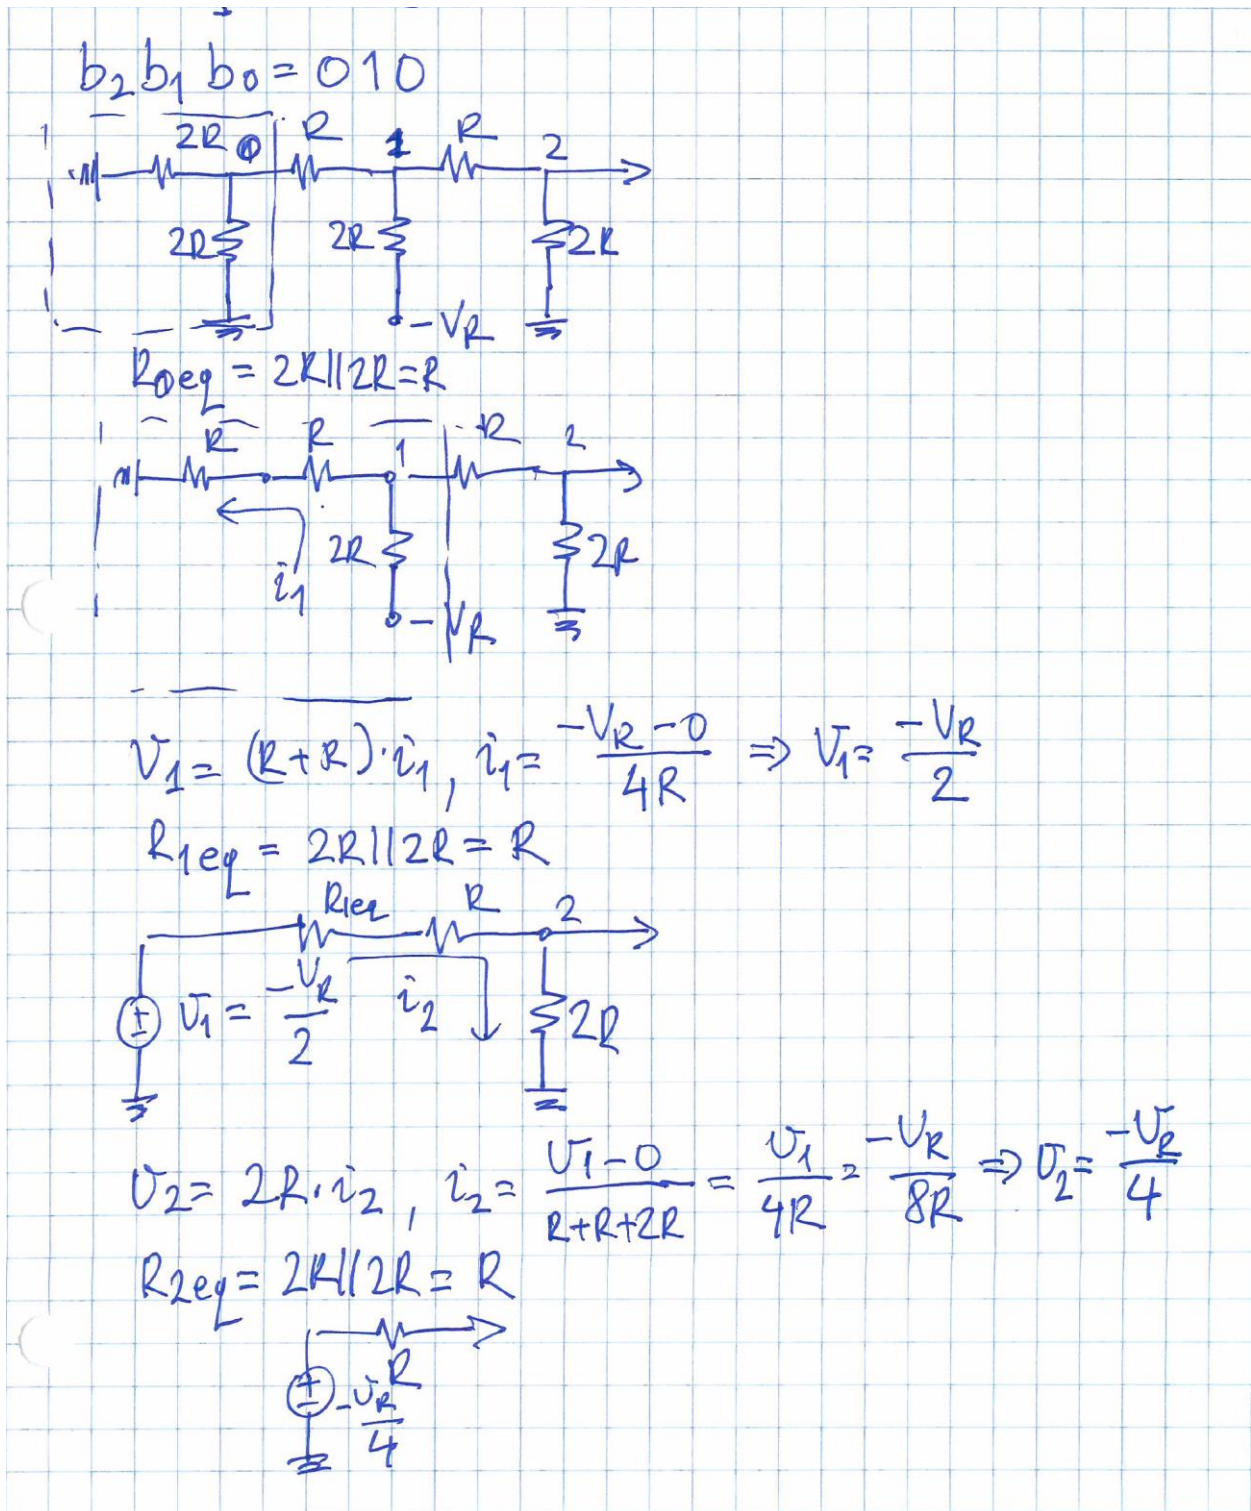 b₂b₁b₀ = 010
2R 0 R 1 R 2
2R 2R 2R
-V_R
R₀eq = 2R||2R = R
R R 1 R 2
2R 2R
i₁
-V_R
V₁ = (R+R)·i₁, i₁ = (-V_R - 0)/4R ⇒ V₁ = -V_R/2
R₁eq = 2R||2R = R
R₁eq R 2
± V₁ = -V_R/2 i₂ 2R
V₂ = 2R·i₂, i₂ = (V₁-0)/(R+R+2R) = V₁/4R = -V_R/8R ⇒ V₂ = -V_R/4
R₂eq = 2R||2R = R
R
± -V_R/4